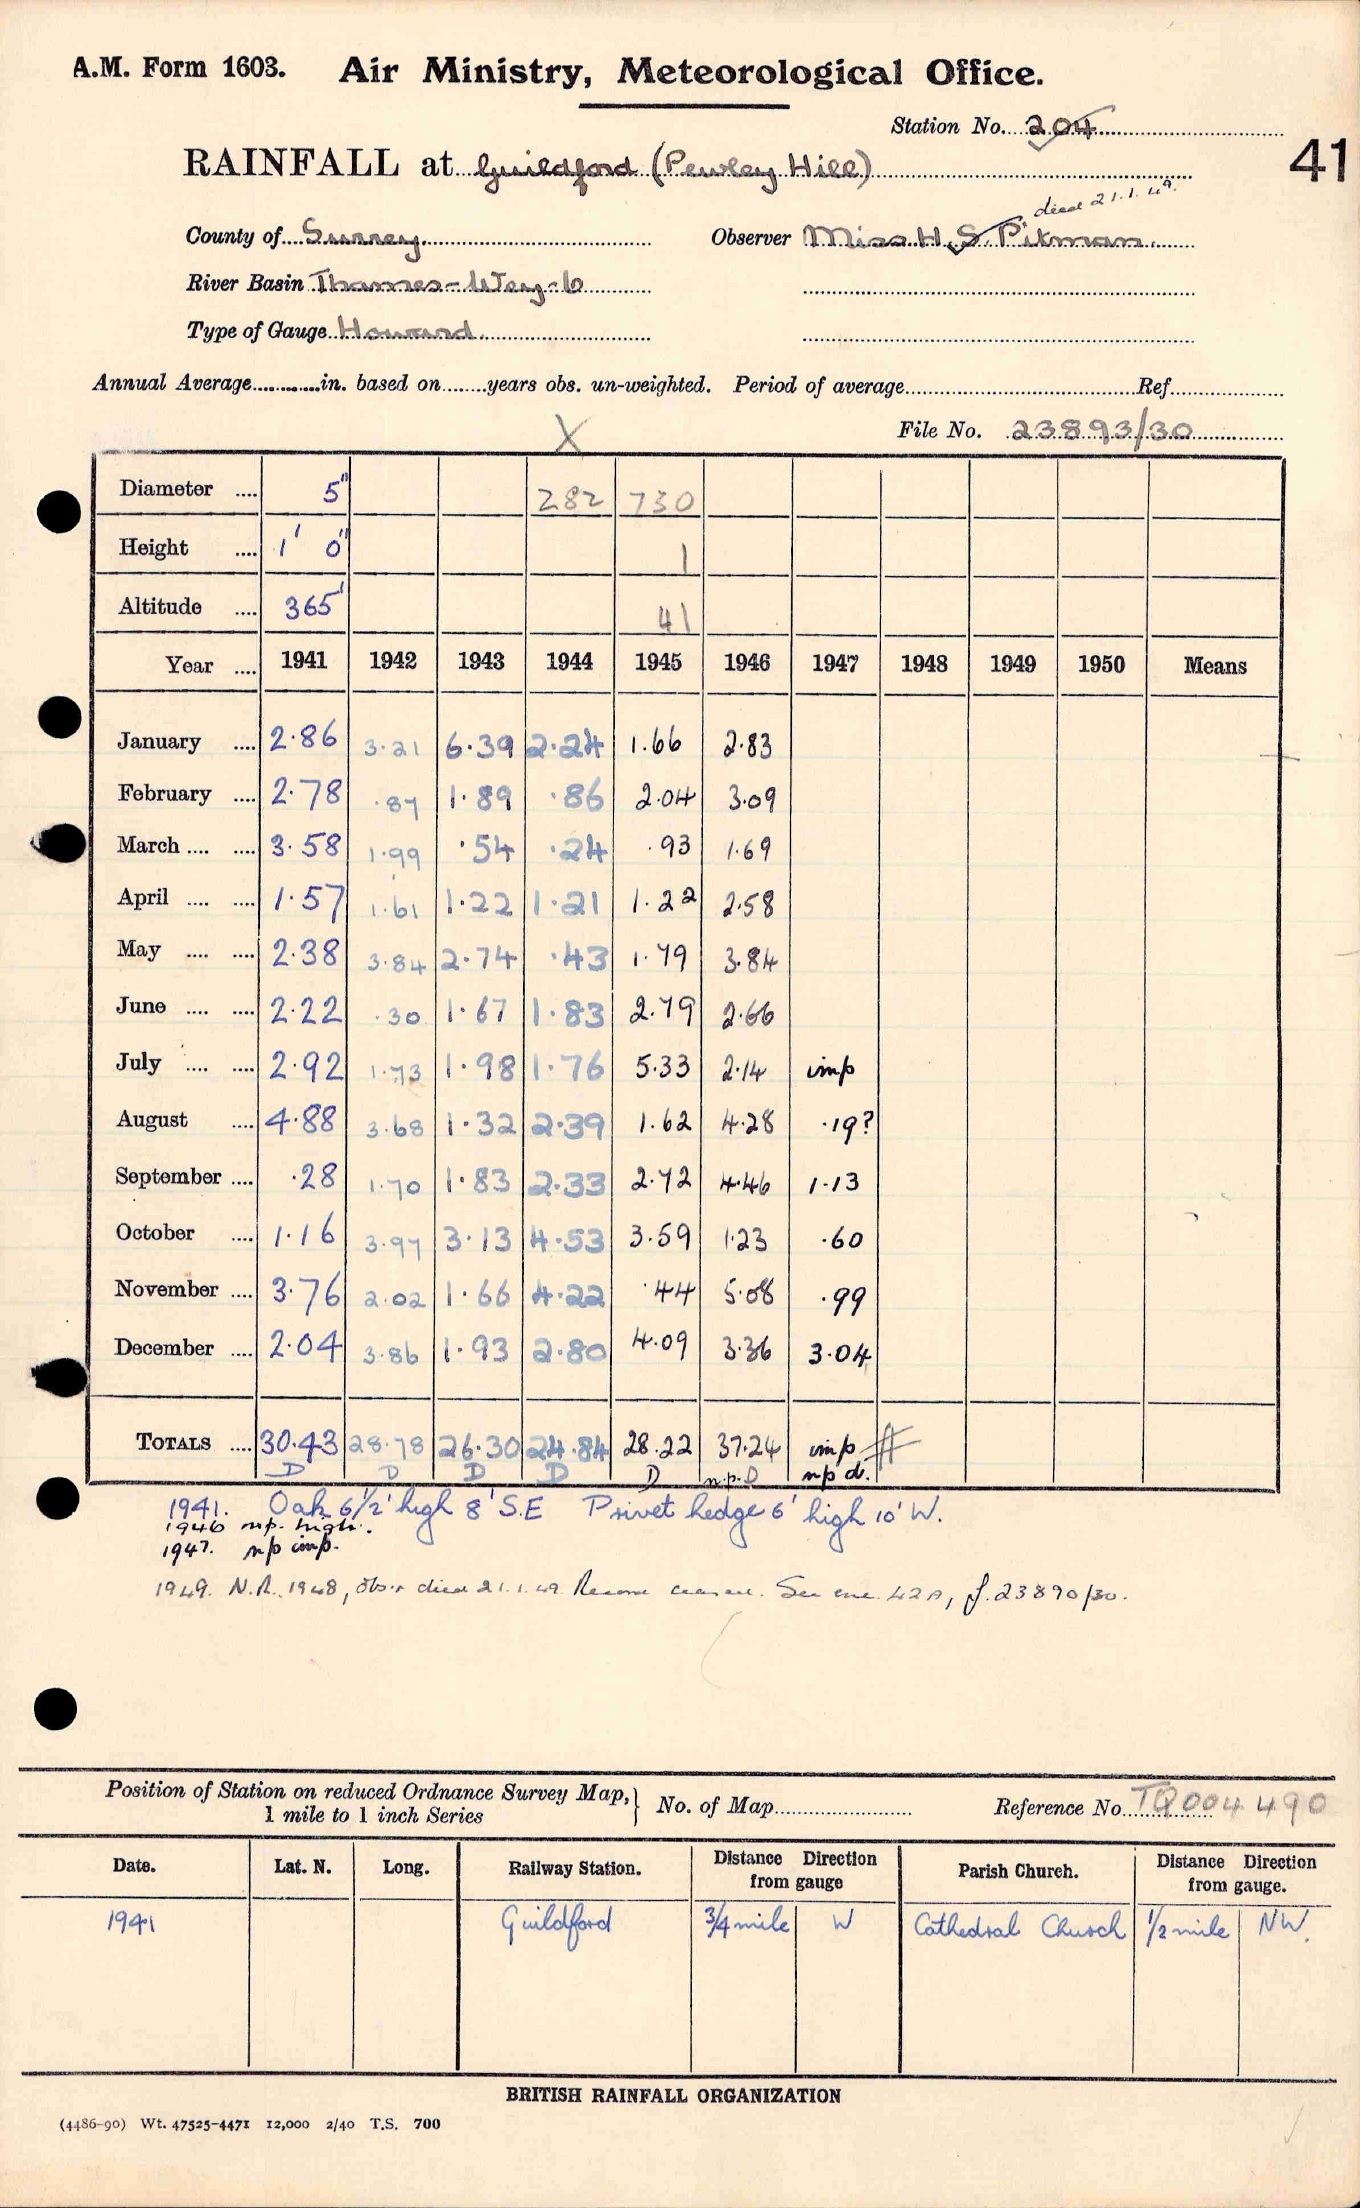 A.M. Form 1603. Air Ministry, Meteorological Office.
Station No. 204
41
RAINFALL at Guildford (Pewley Hill)
died 21.1.49.
County of Surrey Observer Miss H. S. Pitman.
River Basin Thames-Wey-6
Type of Gauge Howard.
Annual Average............in. based on........years obs. un-weighted. Period of average Ref
X
File No. 23893/30
Diameter .... 5" 282 730
Height .... 1' 0" 1
Altitude .... 365' 41
Year .... 1941 1942 1943 1944 1945 1946 1947 1948 1949 1950 Means
January .... 2.86 3.21 6.39 2.24 1.66 2.83
February .... 2.78 .87 1.89 .86 2.04 3.09
March .... .... 3.58 1.99 .54 .24 .93 1.69
April .... .... 1.57 1.61 1.22 1.21 1.22 2.58
May .... .... 2.38 3.84 2.74 .43 1.79 3.84
June .... .... 2.22 .30 1.67 1.83 2.79 2.66
July .... .... 2.92 1.73 1.98 1.76 5.33 2.14 imp
August .... 4.88 3.68 1.32 2.39 1.62 4.28 .19?
September .... .28 1.70 1.83 2.33 2.72 4.46 1.13
October .... 1.16 3.97 3.13 4.53 3.59 1.23 .60
November .... 3.76 2.02 1.66 4.22 .44 5.08 .99
December .... 2.04 3.86 1.93 2.80 4.09 3.36 3.04
TOTALS .... 30.43 28.78 26.30 24.84 28.22 37.24 imp
D D D D D n.p. D n p d.
1941. Oak 6 1/2' high 8' S.E Privet hedge 6' high 10' W.
1946 n.p. high.
1947. n p imp.
1949. N.R. 1948, Obsr died 21.1.49 Record ceased. See enc. 42A, f. 23890/30.
Position of Station on reduced Ordnance Survey Map,
1 mile to 1 inch Series
No. of Map Reference No. TQ004490
Date. Lat. N. Long. Railway Station. Distance Direction from gauge Parish Church. Distance Direction from gauge.
1941 Guildford 3/4 mile W Cathedral Church 1/2 mile NW.
BRITISH RAINFALL ORGANIZATION
(4486-90) Wt. 47525-4471 12,000 2/40 T.S. 700